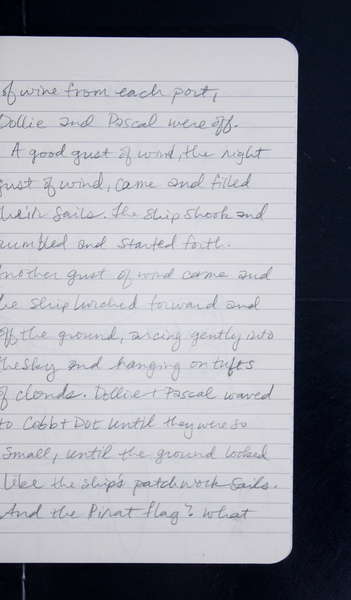 of wine from each port,
Dollie and Pascal were off.
A good gust of wind, the right
gust of wind, came and filled
their sails. The ship shook and
rumbled and started forth.
Another gust of wind came and
he ship lurched forward and
off the ground, arcing gently into
the sky and hanging on tufts
of clouds. Dollie + Pascal waved
to Cobb + Dot until they were so
small, until the ground looked
like the ship's patchwork sails.
And the Pirat flag? What